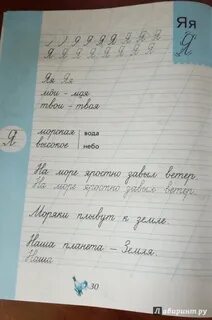 Яя
Я Я Я Я Я Я Я
Я
Я Я Я Я Я Я Я Я
Яя Яя
мои - моя
твои - твоя
Я
морская | вода
высокое | небо
На море яростно завыл ветер.
На море яростно завыл ветер.
Моряки плывут к земле.
Наша планета – Земля.
Наша
30
Лабиринт.ру